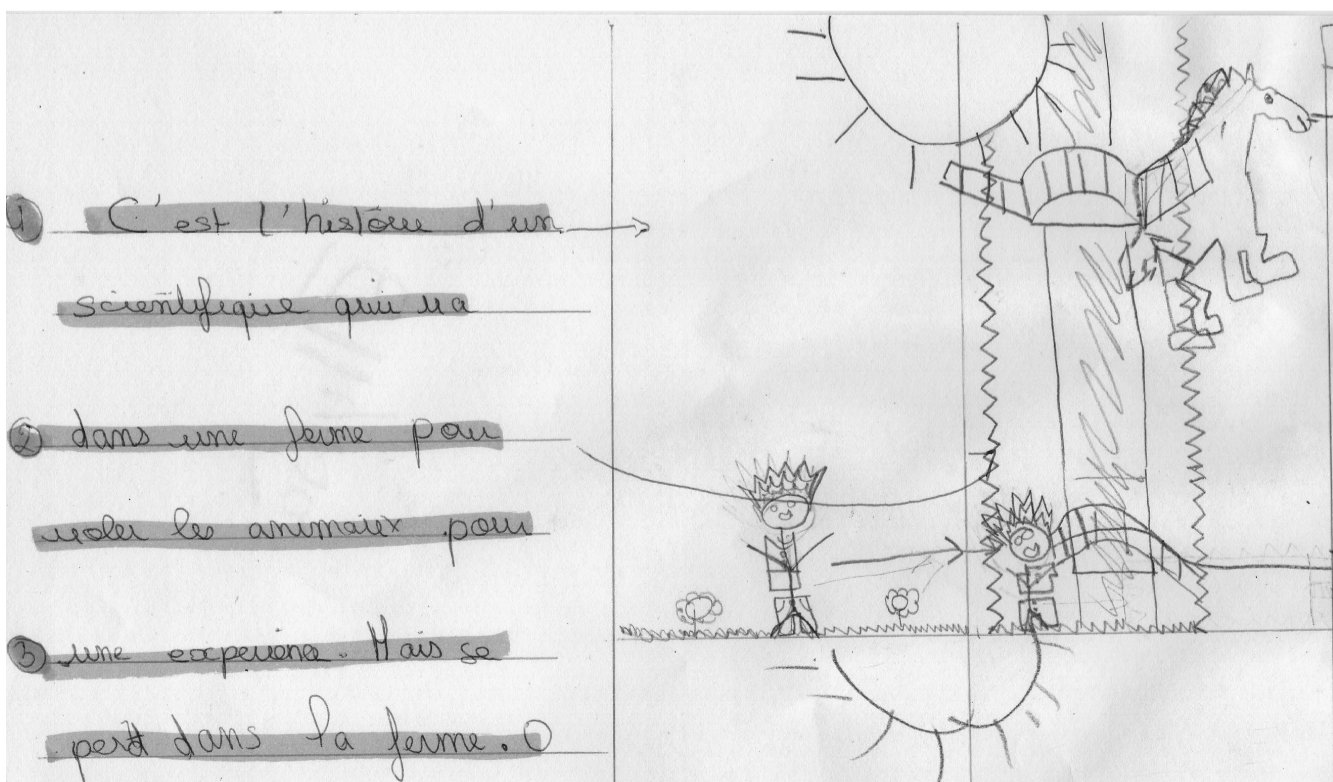 1 C'est l'histoire d'un
scientifique qui va
2 dans une ferme pour
voler les animaux pour
3 une experience. Mais se
perd dans la ferme.